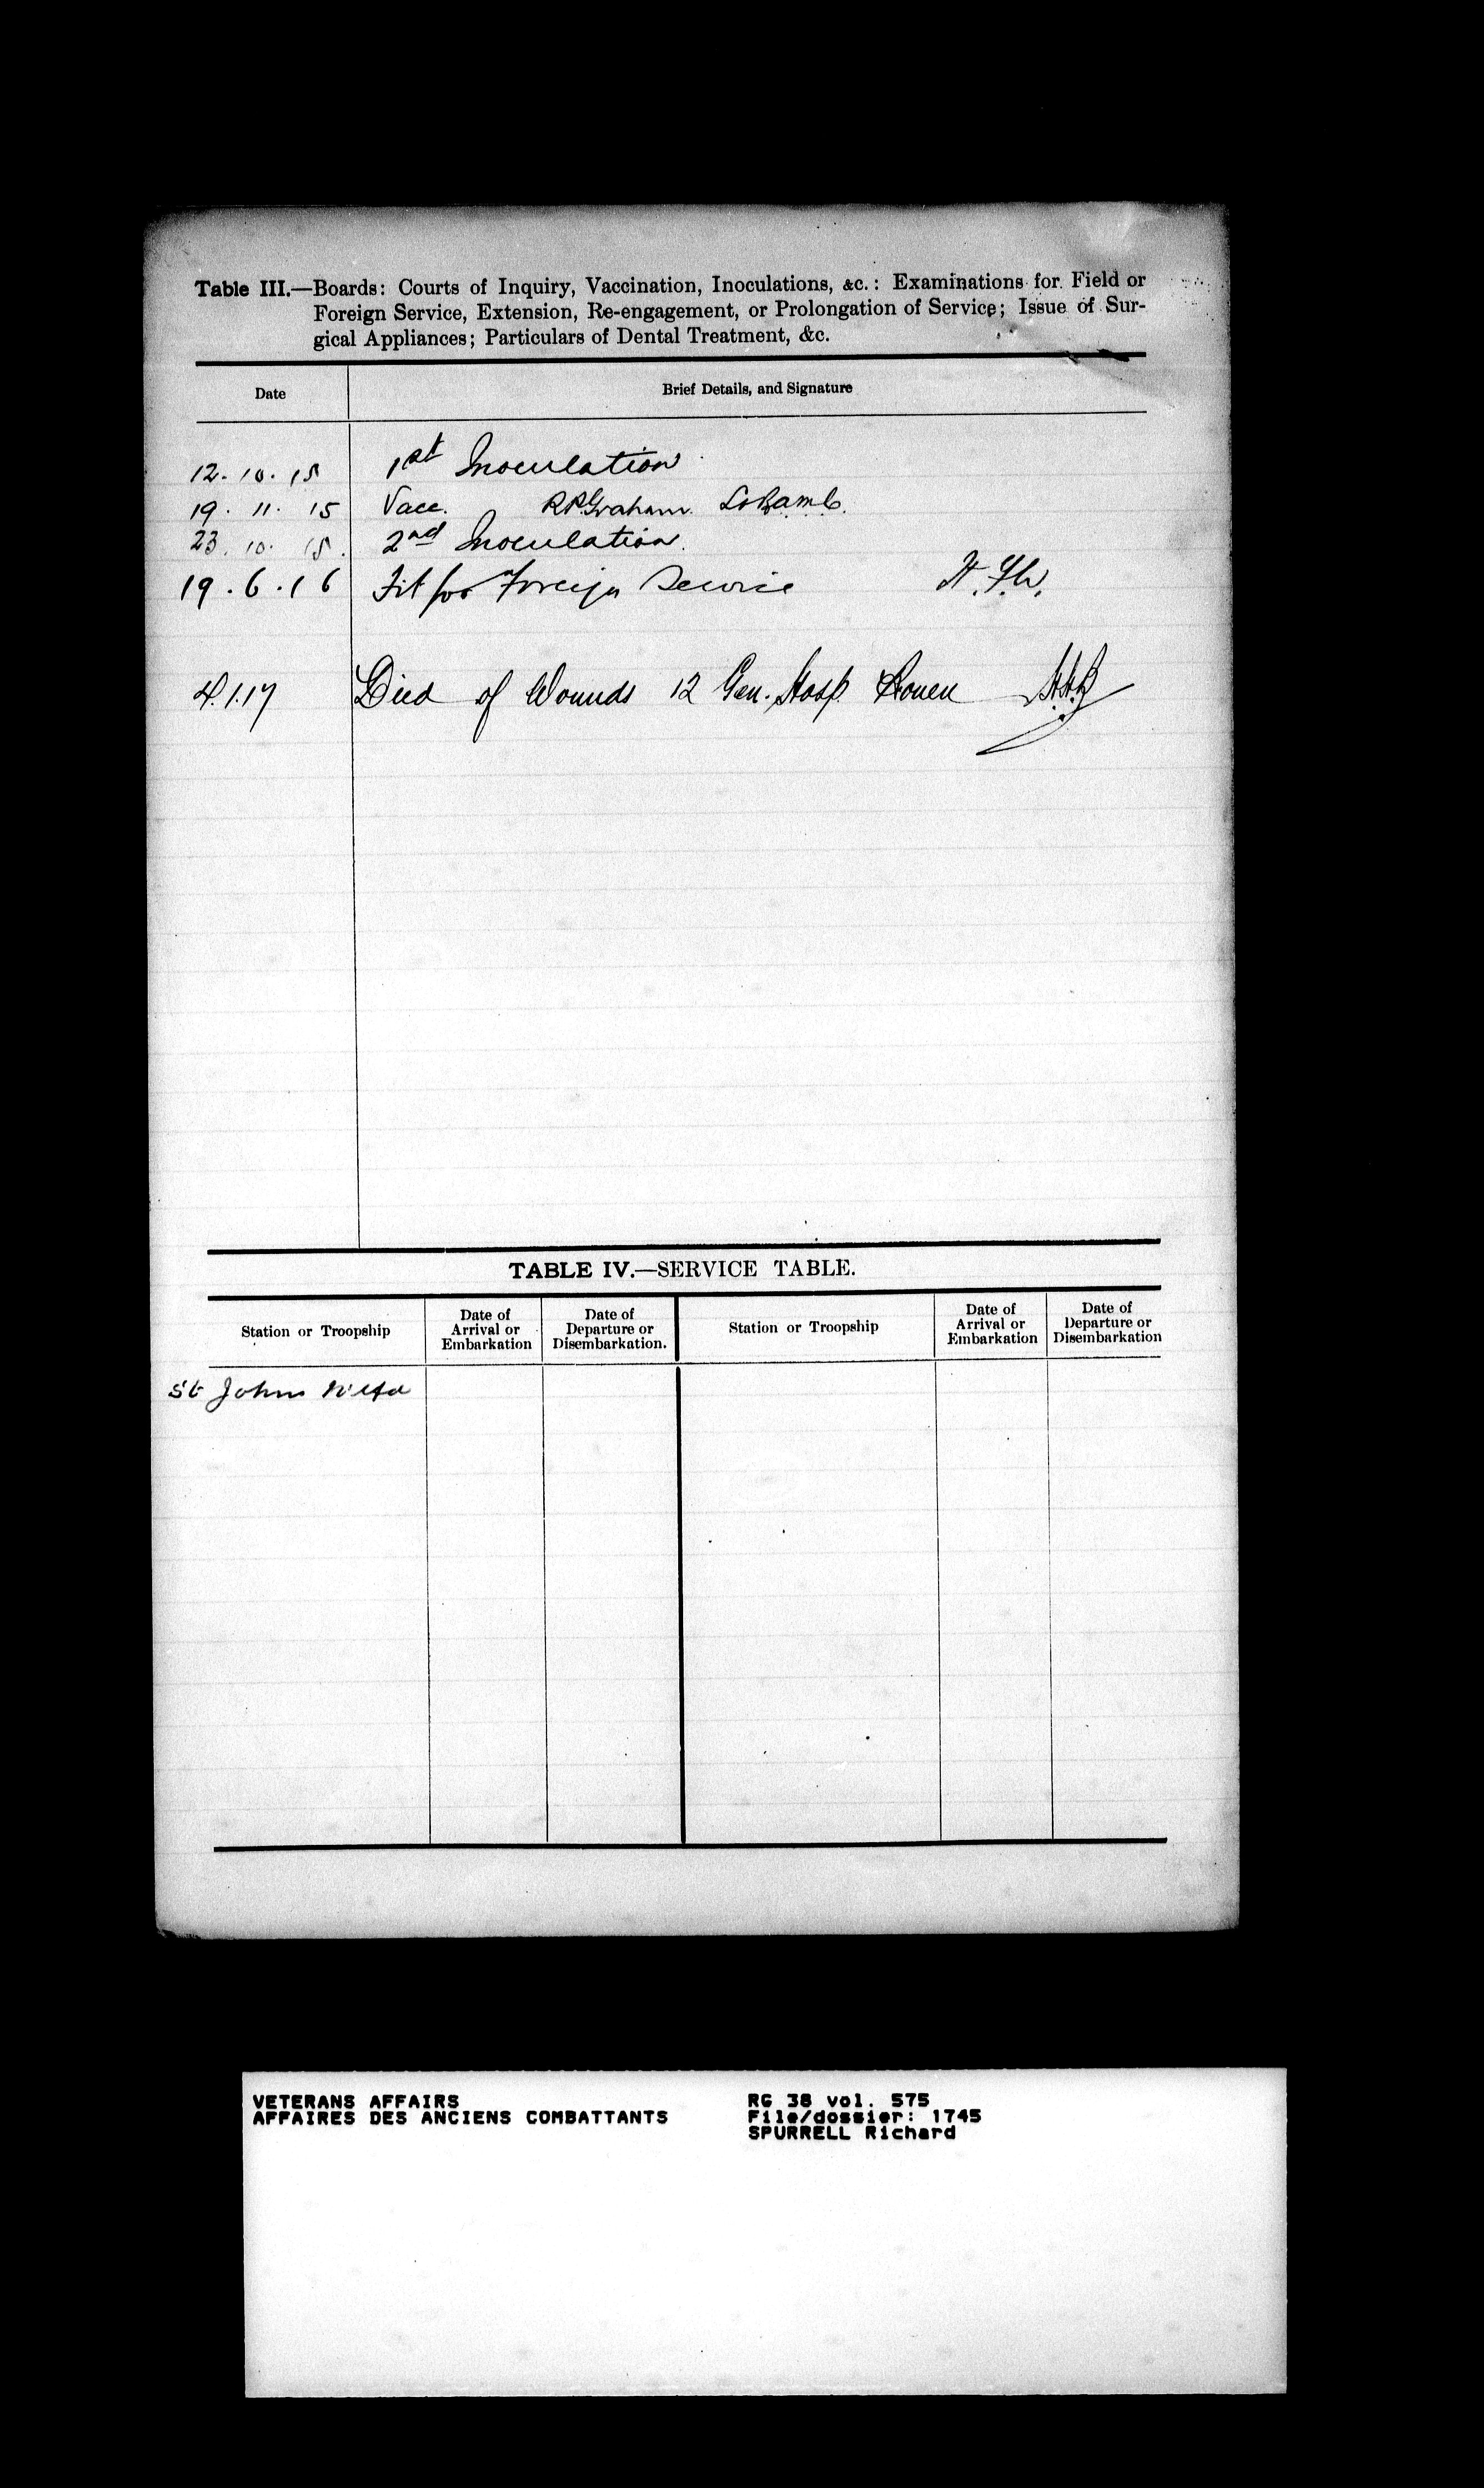 Table III.—Boards: Courts of Inquiry, Vaccination, Inoculations, &c.: Examinations for Field or
Foreign Service, Extension, Re-engagement, or Prolongation of Service; Issue of Sur-
gical Appliances; Particulars of Dental Treatment, &c.
Date Brief Details, and Signature
12.10.15 1st Inoculation
19.11.15 Vacc. R.P. Graham
23.10.15. 2nd Inoculation.
19.6.16 Fit for Foreign Service
4.1.17 Died of Wounds 12 Gen. Hosp. Rouen
TABLE IV.—SERVICE TABLE.
Station or Troopship Date of Arrival or Embarkation Date of Departure or Disembarkation. Station or Troopship Date of Arrival or Embarkation Date of Departure or Disembarkation
St Johns Nfld
VETERANS AFFAIRS RG 38 vol. 575
AFFAIRES DES ANCIENS COMBATTANTS File/dossier: 1745
SPURRELL Richard